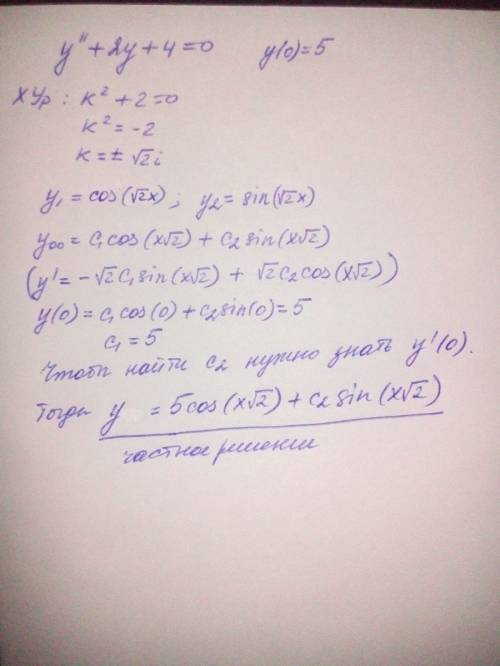 y" + 2y + 4 = 0 y(0) = 5
ХУр: k² + 2 = 0
k² = -2
k = ± √2 i
y₁ = cos(√2x); y₂ = sin(√2x)
y₀₀ = C₁cos(x√2) + C₂sin(x√2)
(y' = -√2C₁sin(x√2) + √2C₂cos(x√2))
y(0) = C₁cos(0) + C₂sin(0) = 5
C₁ = 5
Чтобы найти C₂ нужно знать y'(0).
Тогда y = 5cos(x√2) + C₂sin(x√2)
частное решение